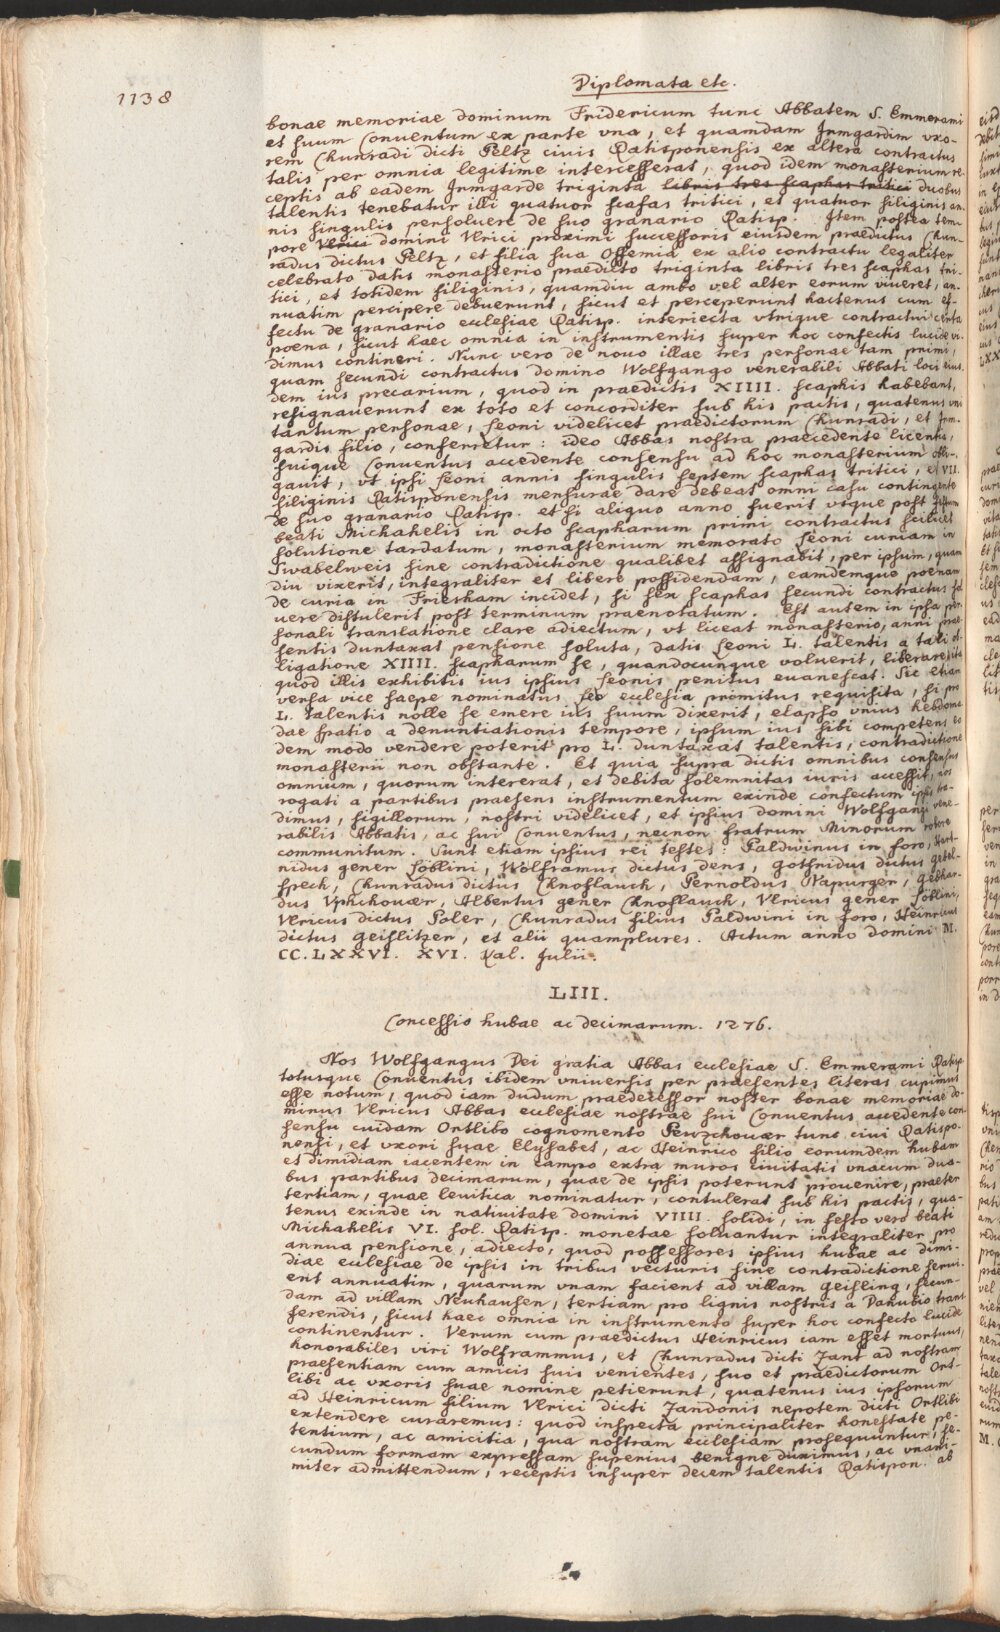 1138
Diplomata etc.
bonae memoriae dominum Fridericum tunc Abbatem S. Emmerami
et suum Conuentum ex parte vna, et quamdam Irmgardim vxo-
rem Chunradi dicti Peltz ciuis Ratisponensis ex altera contractus
talis per omnia legitime intercesserat, quod idem monasterium re-
ceptis ab eadem Irmgarde triginta libris tres scaphas tritici duobus
talentis tenebatur illi quatuor scafas tritici, et quatuor siliginis an-
nis singulis persoluere de suo granario Ratisp. Item postea tem-
pore Vlrici domini Vlrici proximi successoris eiusdem praedictus Chun-
radus dictus Peltz, et filia sua Offemia ex alio contractu legaliter
celebrato datis monasterio praedicto triginta libris tres scaphas tri-
tici, et totidem siliginis, quamdiu ambo vel alter eorum viueret, an-
nuatim percipere debuerunt, sicut et perceperunt hactenus cum ef-
fectu de granario ecclesiae Ratisp. interiecta vtrique contractui certa
poena, sicut haec omnia in instrumentis super hoc confectis lucide vi-
dimus contineri. Nunc vero de nouo illae tres personae tam primi,
quam secundi contractus domino Wolfgango venerabili Abbati loci eius-
dem ius precarium, quod in praedictis XIIII. scaphis habebant,
resignauerunt ex toto et concorditer sub his pactis, quatenus vni
tantum personae, seoni videlicet praedictorum Chunradi, et Irm-
gardis filio, conferretur: ideo Abbas nostra praecedente licentia,
suique Conuentus accedente consensu ad hoc monasterium obli-
gauit, vt ipsi seoni annis singulis septem scaphas tritici, et VII.
siliginis Ratisponensis mensurae dare debeat omni casu contingente
de suo granario Ratisp. et si aliquo anno fuerit vsque post festum
beati Michahelis in octo scapharum primi contractus scilicet
solutione tardatum, monasterium memorato seoni curiam in
Swabelweis sine contradictione qualibet assignabit, per ipsum, quam
diu vixerit, integraliter et libere possidendam, eamdemque poenam
de curia in Friesham incidet, si sex scaphas secundi contractus sol-
uere distulerit post terminum praenotatum. Est autem in ipsa per-
sonali translatione clare adiectum, vt liceat monasterio, anni prae-
sentis duntaxat pensione soluta, datis seoni L. talentis a tali ob-
ligatione XIIII. scapharum se, quandocunque voluerit, liberare, ita
quod illis exhibitis ius ipsius seonis penitus euanescat. Sic etiam
versa vice saepe nominatus seo ecclesia primitus requisita, si pro
L. talentis nolle se emere ius suum dixerit, elapso vnius hebdoma-
dae spatio a denuntiationis tempore, ipsum ius sibi competens eo
dem modo vendere poterit pro L. duntaxat talentis, contradictione
monasterii non obstante. Et quia supra dictis omnibus consensus
omnium, quorum intererat, et debita solemnitas iuris accessit, nos
rogati a partibus praesens instrumentum exinde confectum ipsis tra-
dimus, sigillorum, nostri videlicet, et ipsius domini Wolfgangi vene-
rabilis Abbatis, ac sui Conuentus, necnon fratrum Minorum robore
communitum. Sunt etiam ipsius rei testes: Paldwinus in foro, Hart-
nidus gener soblini, Wolframus dictus dens, Gotfridus dictus gebel-
speck, Chunradus dictus Chnoflauch, Pernoldus Napurger, Gebhar-
dus Vphchouaer, Albertus gener Chnoflauch, Vlricus gener soblini,
Vlricus dictus Poler, Chunradus filius Paldwini in foro, Heinricus
dictus Geislitzer, et alii quamplures. Actum anno domini M.
CC. LXXVI. XVI. Kal. Julii.
LIII.
Concessio hubae ac decimarum. 1276.
Nos Wolfgangus Dei gratia Abbas ecclesiae S. Emmerami Ratisp.
totusque Conuentus ibidem vniuersis per praesentes literas cupimus
esse notum, quod iam dudum praedecessor noster bonae memoriae do-
minus Vlricus Abbas ecclesiae nostrae sui Conuentus accedente con-
sensu cuidam Ortlibo cognomento Pewzchouaer tunc ciui Ratispo-
nensi, et vxori suae Elysabet, ac Heinrico filio eorumdem hubam
et dimidiam iacentem in campo extra muros ciuitatis vnacum dua-
bus partibus decimarum, quae de ipsis poterunt prouenire, praeter
tertiam, quae leuitica nominatur, contulerat sub his pactis, qua-
tenus exinde in natiuitate domini VIIII. solidi, in festo vero beati
Michahelis VI. sol. Ratisp. monetae soluantur integraliter pro
annua pensione, adiecto, quod possessores ipsius hubae ac dimi-
diae ecclesiae de ipsis in tribus vecturis sine contradictione serui-
ent annuatim, quarum vnam facient ad villam Geisling, secun-
dam ad villam Neuhausen, tertiam pro lignis nostris a Danubio trans
ferendis, sicut haec omnia in instrumento super hoc confecto lucide
continentur. Verum cum praedictus Heinricus iam esset mortuus,
honorabiles viri Wolframmus, et Chunradus dicti Zant ad nostram
praesentiam cum amicis suis venientes, suo et praedictorum Ort-
libi ac vxoris suae nomine petierunt, quatenus ius ipsorum
ad Heinricum filium Vlrici dicti Zandonis nepotem dicti Ortlibi
extendere curaremus: quod inspecta principaliter honestate pe-
tentium, ac amicitia, qua nostram ecclesiam prosequuntur, se-
cundum formam expressam superius benigne duximus, ac vnani-
miter admittendum, receptis insuper decem talentis Ratispon. ab